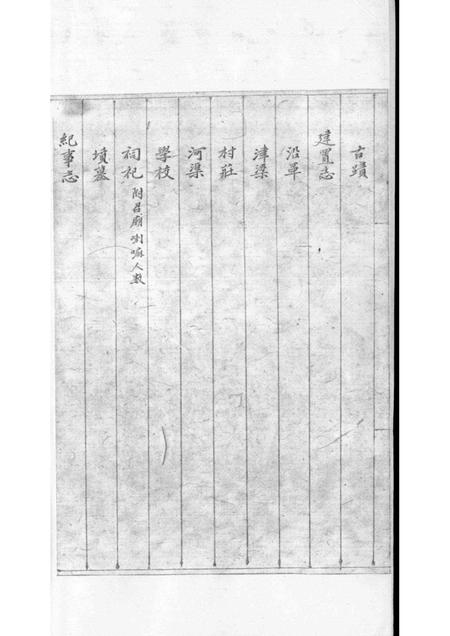 古蹟
建置志
沿革
津梁
村莊
河渠
學校
祠祀 附召廟喇嘛人數
墳墓
紀事志